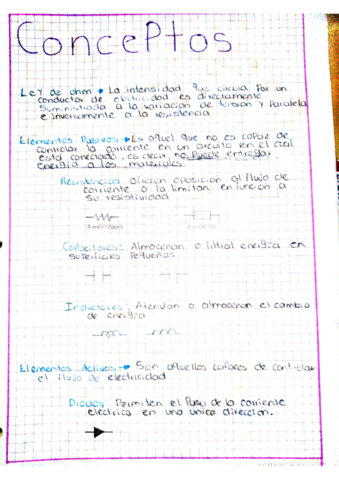 Conceptos
Ley de ohm → La intensidad que circula por un
conductor de electricidad es directamente
suministrada a la variación de tensión y paralela
e inversamente a la resistencia
Elementos Pasivos → Es aquel que no es capaz de
controlar la corriente en un circuito en el cual
está conectado, es decir, no puede entregar
energía a los materiales.
Resistencias: Ofrecen oposición al flujo de
corriente o la limitan en función a
su resistividad
Capacitores: Almacenan o filtran energía en
superficies pequeñas.
Inductores: Atenúan o almacenan el cambio
de energía
Elementos Activos → Son aquellos capaces de controlar
el flujo de electricidad
Diodos: Permiten el flujo de la corriente
eléctrica en una única dirección.